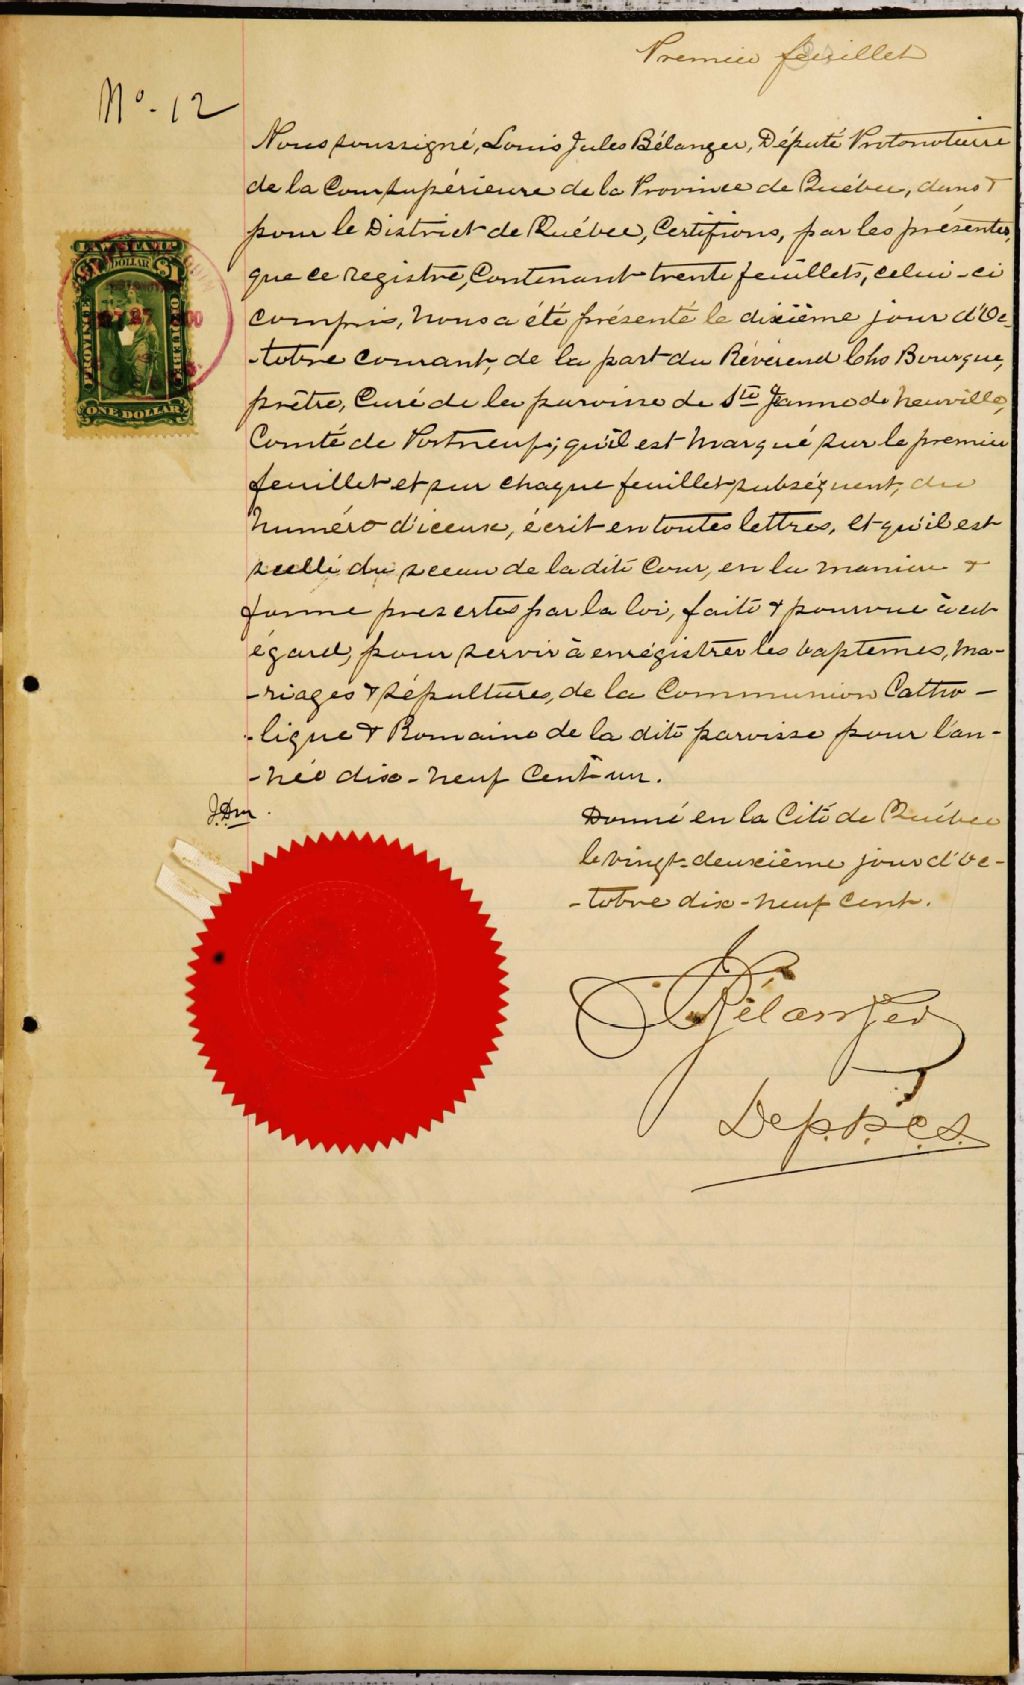 Premier feuillet
No. 12
Nous soussigné, Louis Jules Bélanger, Député Protonotaire
de la Cour Supérieure de la Province de Québec, dans &
pour le District de Québec, Certifions, par les présentes,
que ce registre, Contenant trente feuillets, celui-ci
compris, nous a été présenté le dixième jour d'Oc-
-tobre courant, de la part du Révérend Chs Bourque,
prêtre, Curé de la paroisse de Ste Jeanne de Neuville,
Comté de Portneuf; qu'il est marqué sur le premier
feuillet et sur chaque feuillet subséquent, du
numéro d'iceux, écrit en toutes lettres, et qu'il est
scellé du sceau de la dite Cour, en la manière &
forme prescrites par la loi, faite & pourvue à cet
égard, pour servir à enrégistrer les baptêmes, ma-
-riages & sépultures, de la Communion Catho-
-lique & Romaine de la dite paroisse pour l'an-
-née dix-neuf cent un.
Donné en la Cité de Québec
le vingt-deuxième jour d'Oc-
-tobre dix-neuf cent.
Bélanger
Dep. P. C. S.
LAW STAMP
DOLLAR $1
PROVINCE
ONE DOLLAR